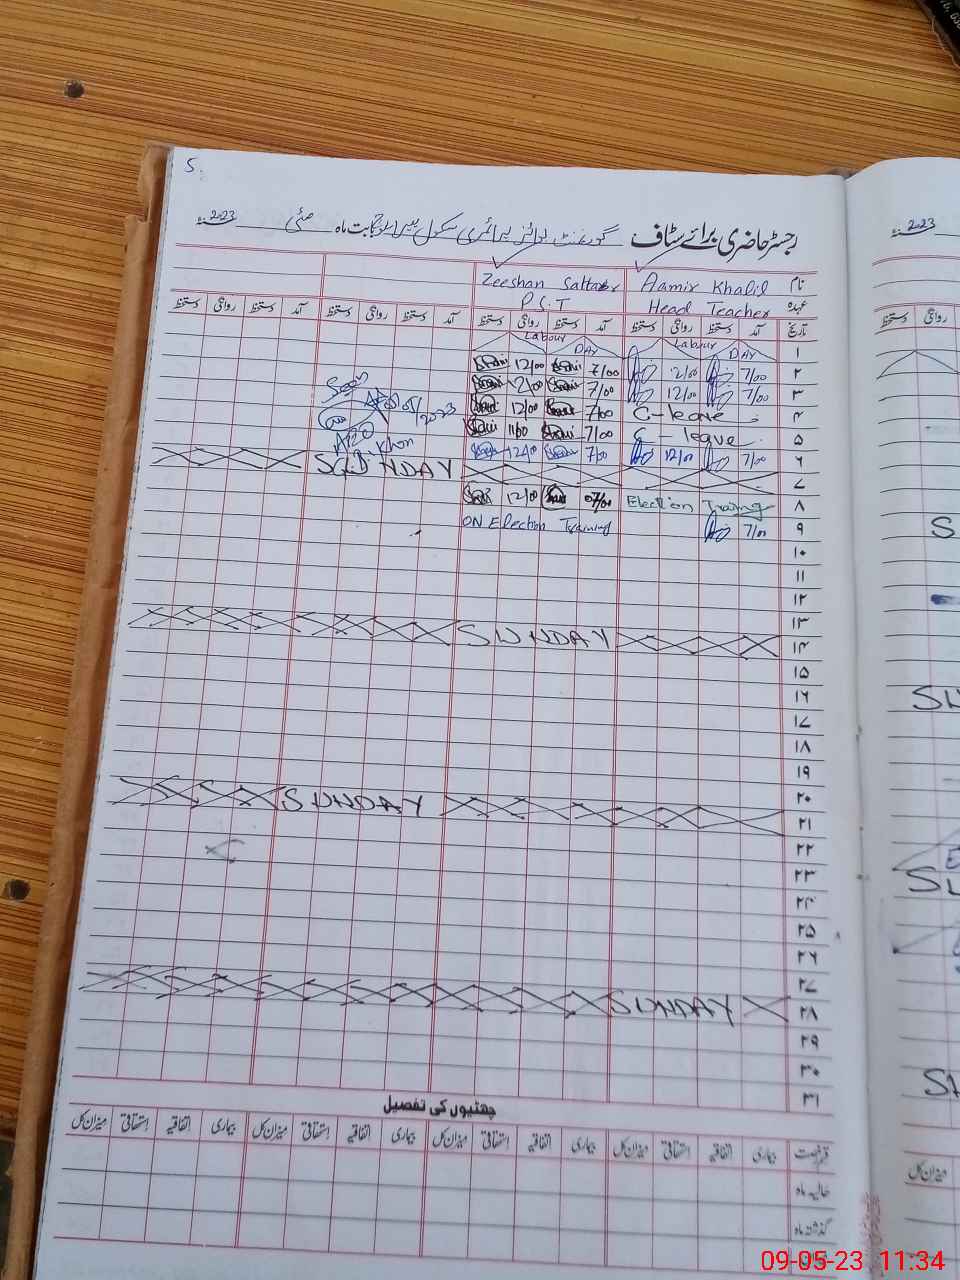 5.
رجسٹر حاضری برائے سٹاف گورنمنٹ بوائز پرائمری سکول بابت ماہ مئی 2023ء
نام Aamir Khalil Zeeshan Sattar
عہدہ Head Teacher P.S.T
تاریخ آمد دستخط روانگی دستخط آمد دستخط روانگی دستخط آمد دستخط روانگی دستخط آمد دستخط روانگی دستخط
۱ Labour DAY Labour DAY
۲ 7/00 12/00 7/00 12/00
۳ 7/00 12/00 7/00 12/00
۴ C-leave 7/00 12/00
۵ C-leave 7/00 11/00
۶ 7/00 12/00 7/00 12/00
۷ SUNDAY
۸ Election Training 07/00 12/00
۹ 7/00 ON Election Training
۱۰
۱۱
۱۲
۱۳
۱۴ SUNDAY
۱۵
۱۶
۱۷
۱۸
۱۹
۲۰
۲۱ SUNDAY
۲۲
۲۳
۲۴
۲۵
۲۶
۲۷
۲۸ SUNDAY
۲۹
۳۰
۳۱
چھٹیوں کی تفصیل
قسم رخصت بیماری اتفاقیہ استحقاقی میزان کل بیماری اتفاقیہ استحقاقی میزان کل بیماری اتفاقیہ استحقاقی میزان کل
حالیہ ماہ
گذشتہ ماہ
2023ء
دستخط روانگی
میزان کل
09-05-23 11:34